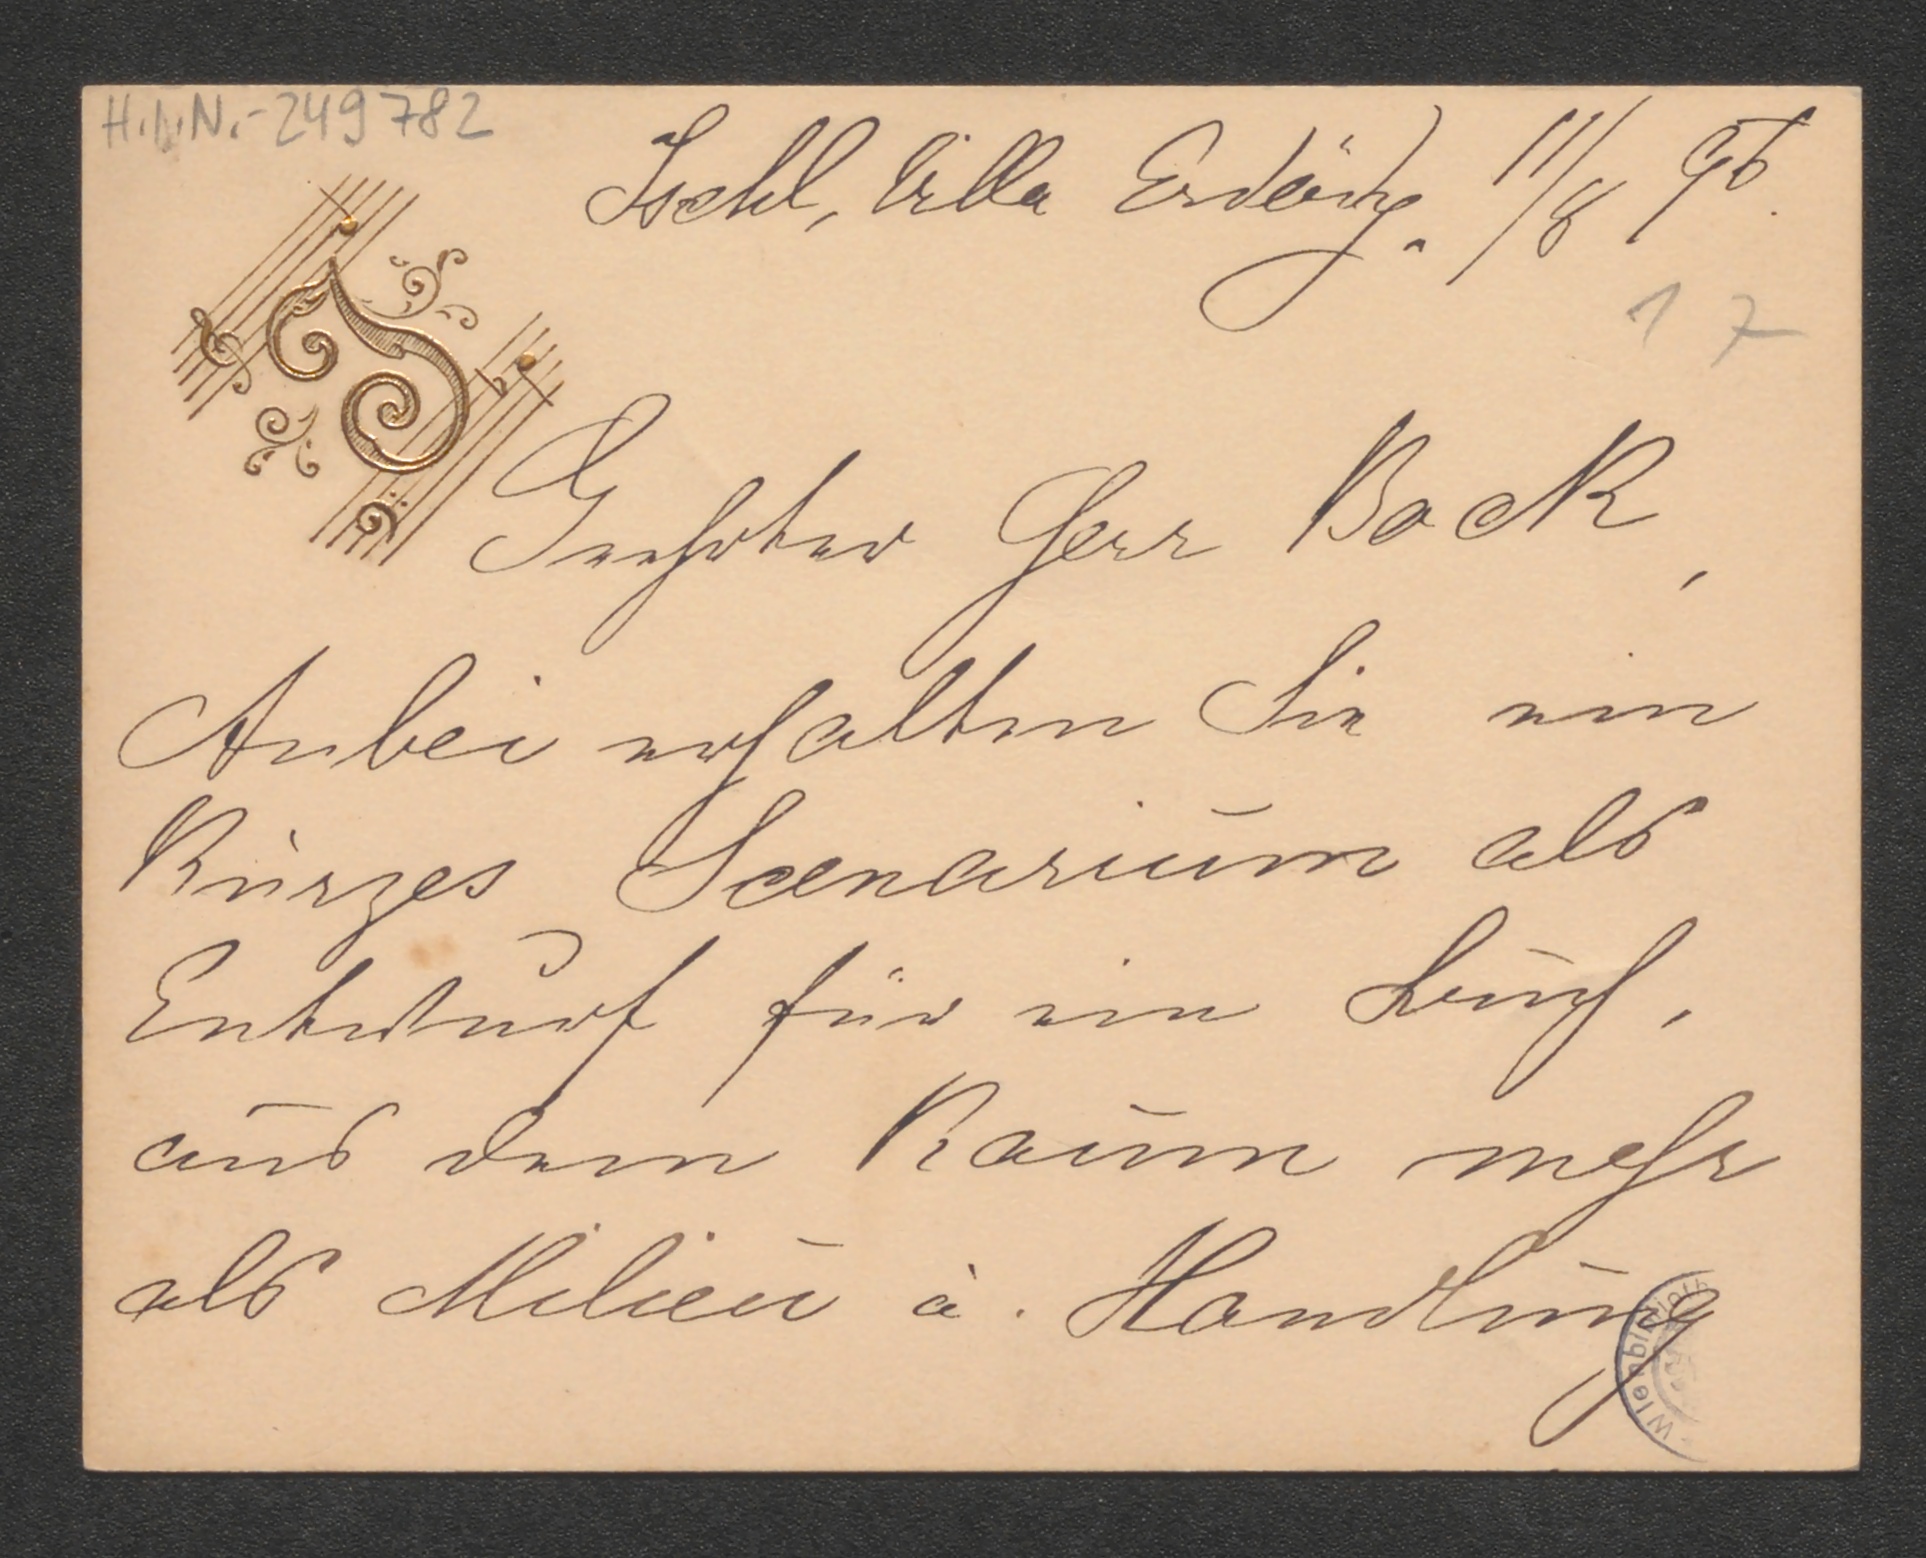 H.I.N.-249782
Ischl, Villa Erdödy. 11/8 96.
17
Geehrter Herr Bock,
Anbei erhalten Sie ein
kurzes Scenarium als
Entwurf für ein Buch,
aus dem kaum mehr
als Milieu u. Handlung
Wienbibliothek